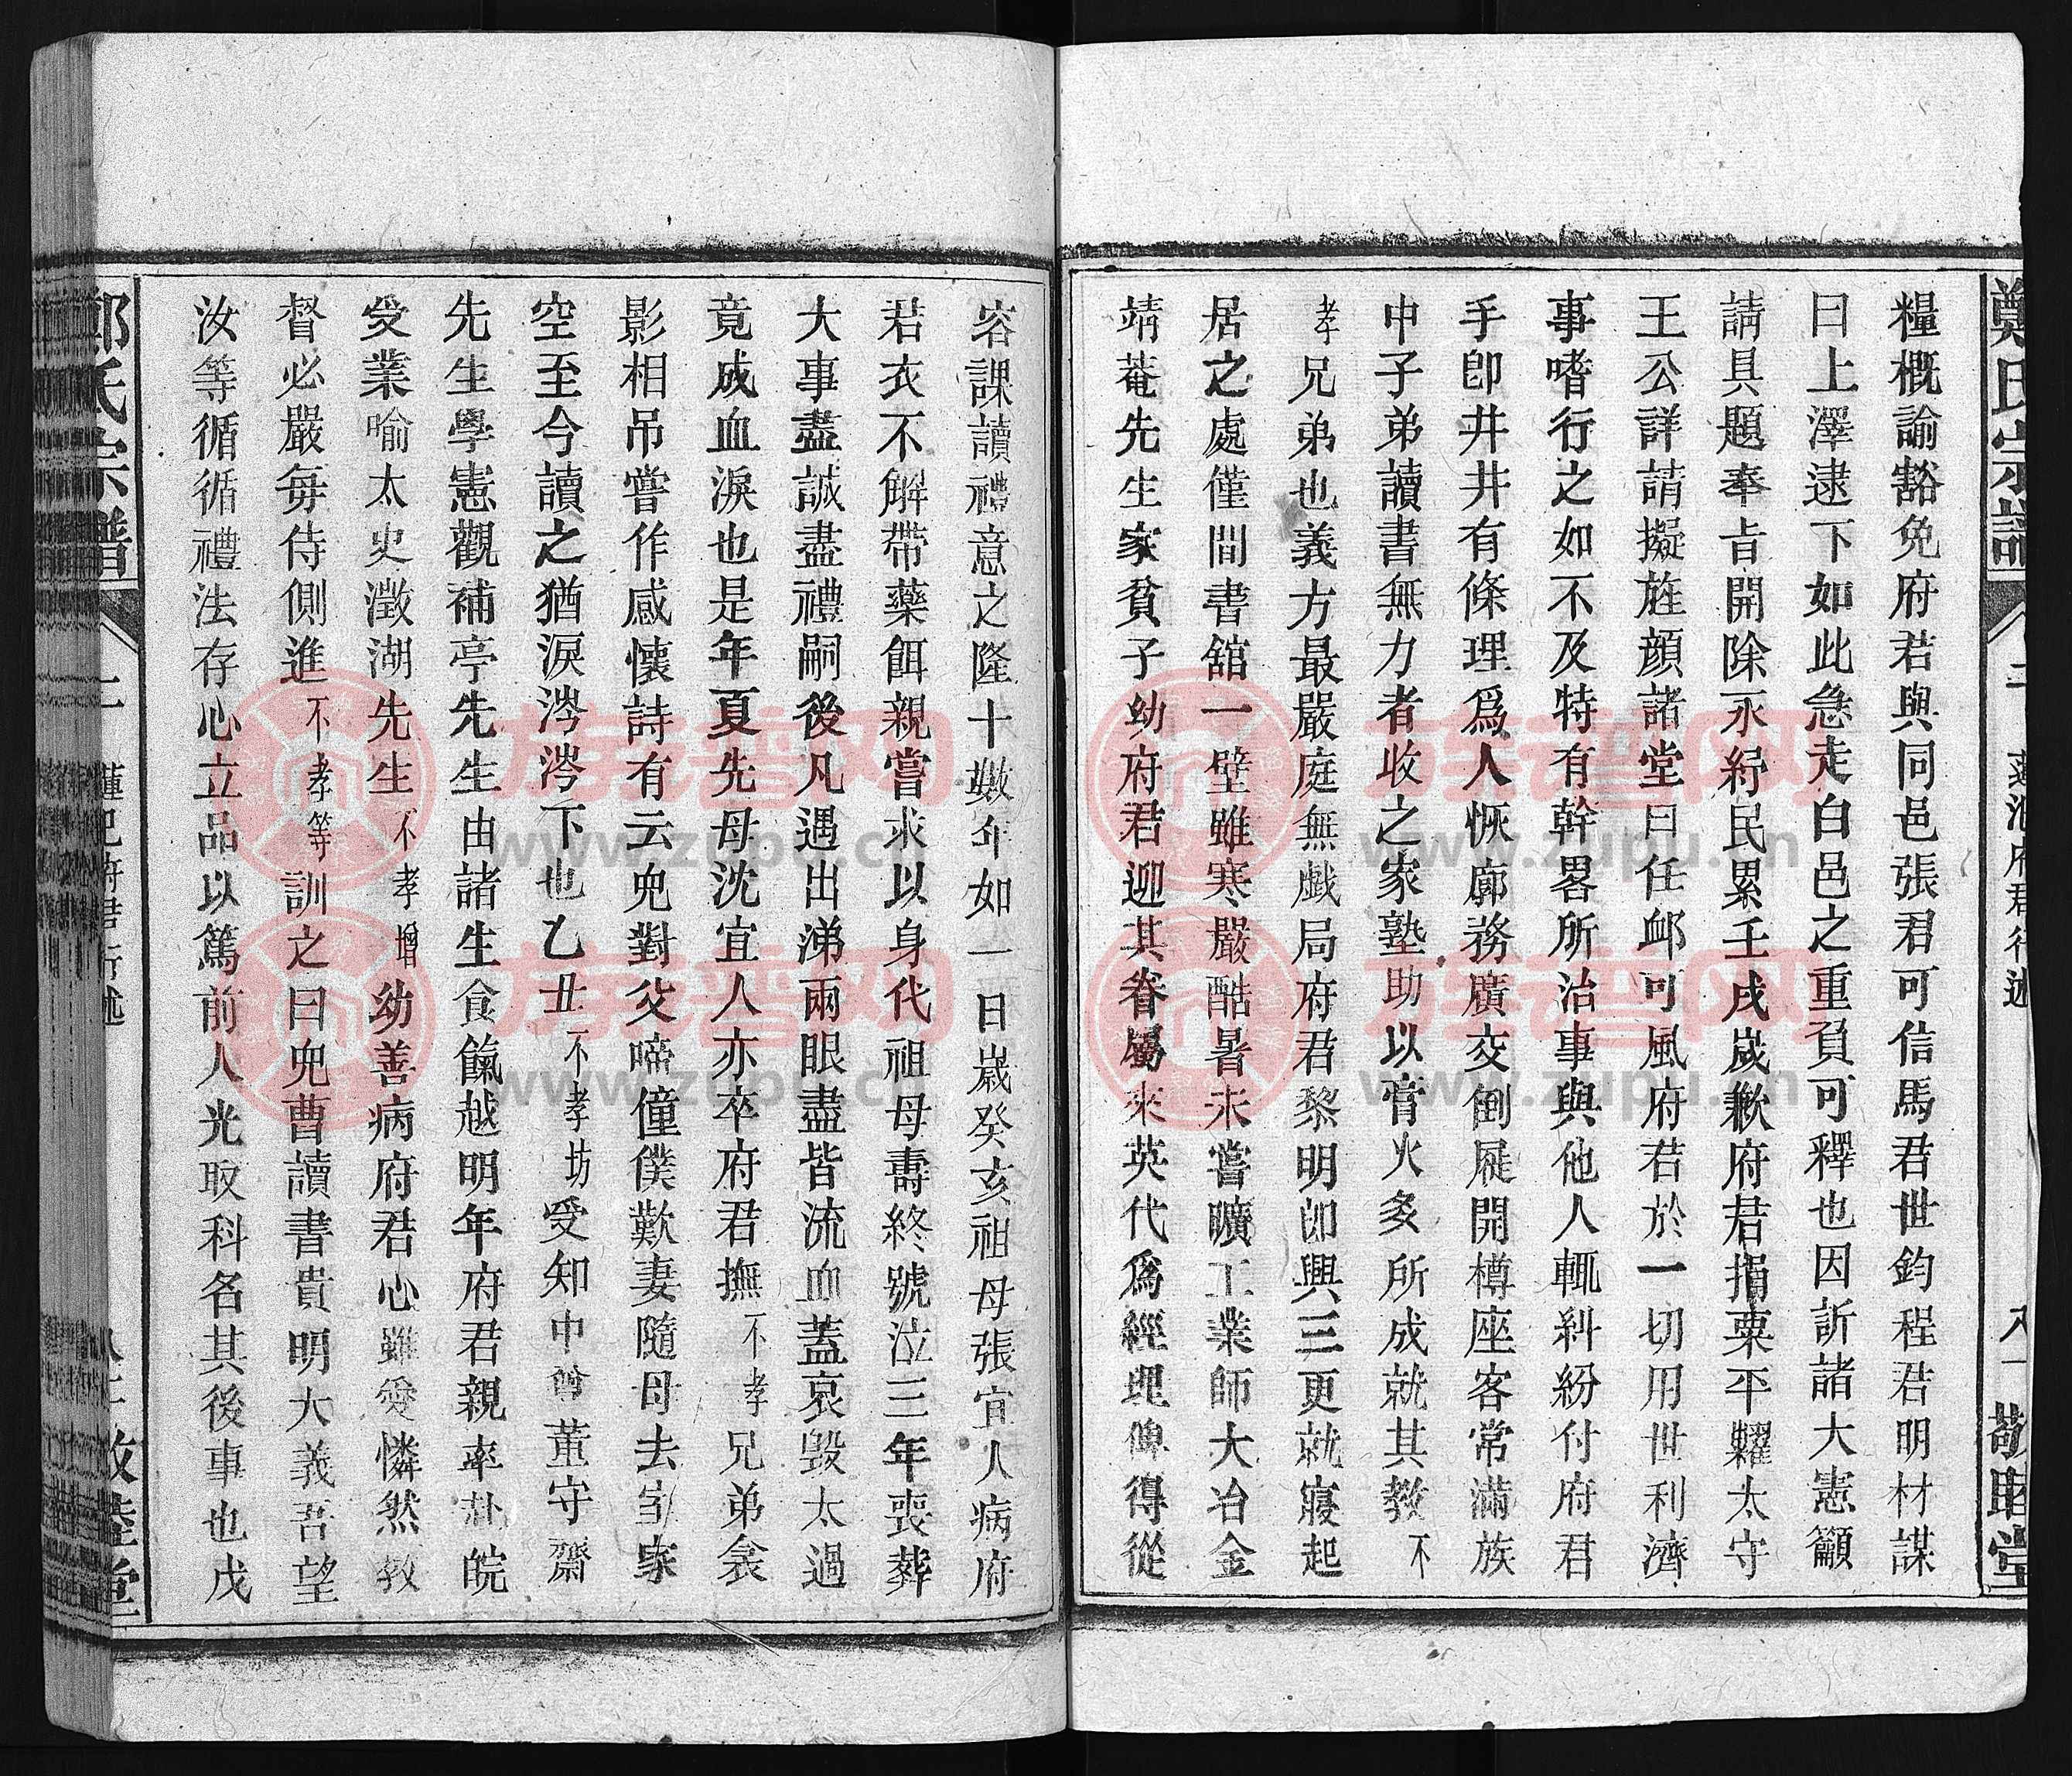 鄭氏宗譜
敬睦堂
糧概諭豁免府君與同邑張君可信馬君世鈞程君明材謀
曰上澤逮下如此急走白邑之重負可釋也因訴諸大憲籲
請具題奉旨開除永紓民累壬戌歲歉府君捐粟平糶太守
王公詳請擬旌顏諸堂曰任卹可風府君於一切用世利濟
事嗜行之如不及特有幹畧所治事與他人輒糾紛付府君
手卽井井有條理爲人恢廓務廣交倒屣開樽座客常滿族
中子弟讀書無力者收之家塾助以膏火多所成就其教不
孝兄弟也義方最嚴庭無戲局府君黎明卽興三更就寢起
居之處僅間書舘一壁雖寒嚴酷暑未嘗曠工業師大冶金
靖菴先生家貧子幼府君迎其眷屬來英代爲經理俾得從
容課讀禮意之隆十數年如一日歲癸亥祖母張宜人病府
君衣不解帶藥餌親嘗求以身代祖母壽終號泣三年喪葬
大事盡誠盡禮嗣後凡遇出涕兩眼盡皆流血蓋哀毀太過
竟成血淚也是年夏先母沈宜人亦卒府君撫不孝兄弟衾
影相吊嘗作感懷詩有云兒對父啼僮僕歎妻隨母去室家
空至今讀之猶淚涔涔下也乙丑不孝坊受知中丞董守齋
先生學憲觀補亭先生由諸生食餼越明年府君親率赴皖
受業喻太史澂湖先生不孝增幼善病府君心雖愛憐然教
督必嚴每侍側進不孝等訓之曰兒曹讀書貴明大義吾望
汝等循循禮法存心立品以篤前人光取科名其後事也戊
鄭氏宗譜
敬睦堂
族譜网
www.zupu.cn
族譜网
www.zupu.cn
族譜网
www.zupu.cn
族譜网
www.zupu.cn